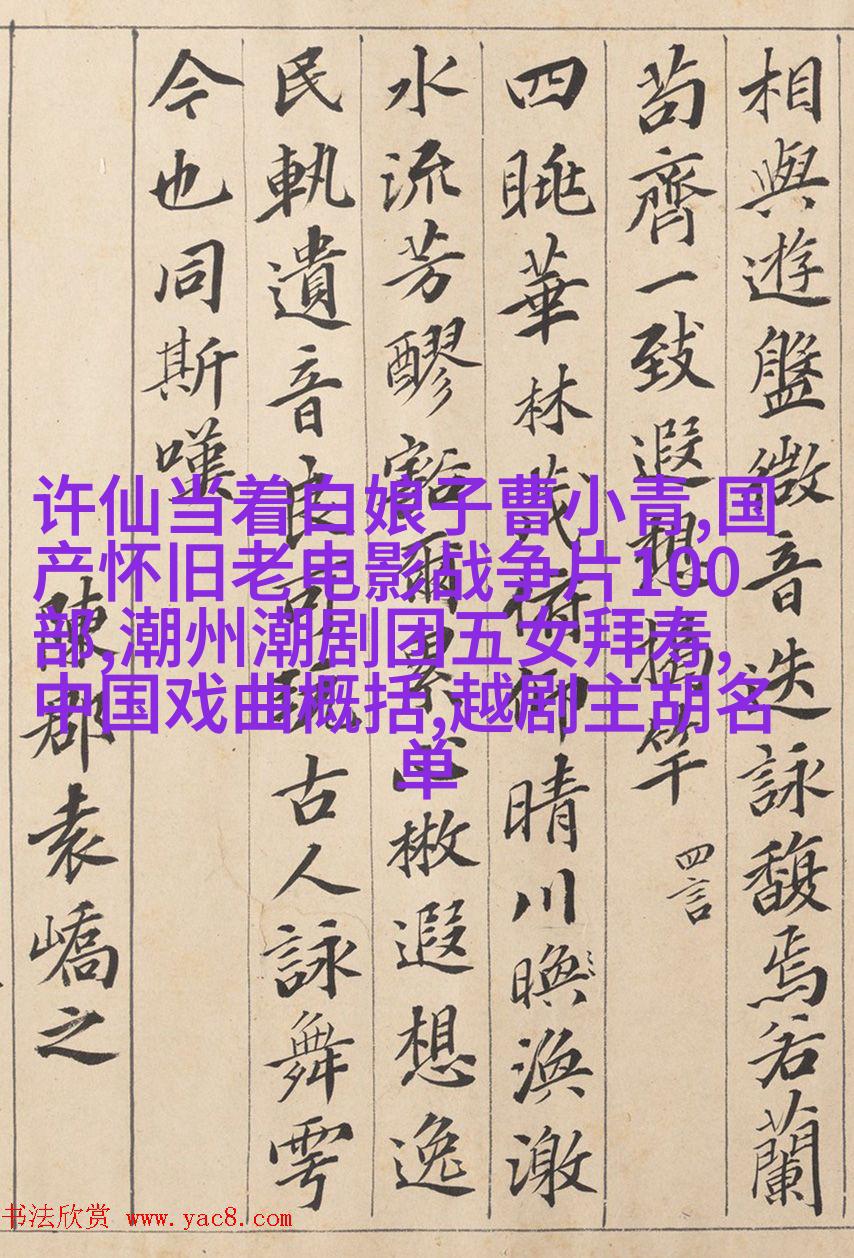 相與遊盤微音迭詠馥焉若蘭
苟齊一致遐想揭竿 四言
四眺華林茂俯仰晴川暎渙激
水流芳醪豁爾累心遐想逸
民軌遺音良可翫古人詠舞雩
今也同斯嘆
陳郡袁嶠之
许仙当着白娘子曹小青,国
产怀旧老电影战争片100
部,潮州潮剧团五女拜寿,
中国戏曲概括,越剧主胡名
单
书法欣赏 www.yac8.com